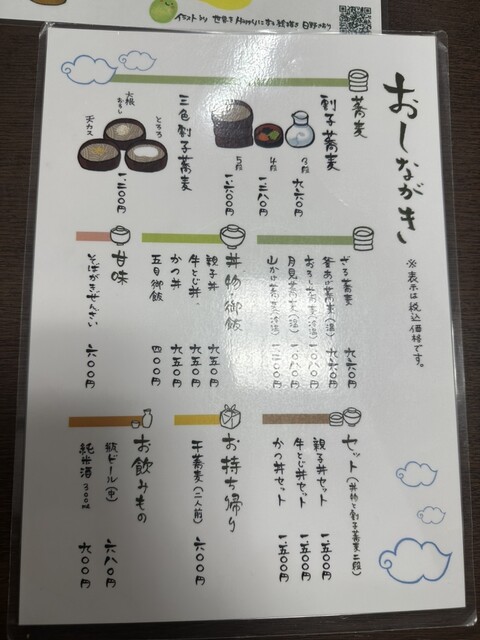 イラスト by 世界をHappyにする絵描き 日野さおり
おしながき
※表示は税込価格です。
蕎麦
割子蕎麦
3段 九六〇円
4段 一二八〇円
5段 一六〇〇円
三色割子蕎麦
とろろ
大根おろし
天カス
一二〇〇円
ざる蕎麦 九六〇円
釜あげ蕎麦(温) 九六〇円
おろし蕎麦
月見蕎麦(温) 一〇八〇円
山かけ蕎麦 一二〇〇円
丼物・御飯
親子丼 九五〇円
牛とじ丼 九五〇円
かつ丼 九五〇円
五目御飯 四〇〇円
甘味
そばがきぜんざい 六〇〇円
セット(丼物と割子蕎麦二段)
親子丼セット 一五〇〇円
牛とじ丼セット 一五〇〇円
かつ丼セット 一五〇〇円
お持ち帰り
干蕎麦(二人前) 六〇〇円
お飲みもの
瓶ビール(中) 六八〇円
純米酒300ml 九〇〇円